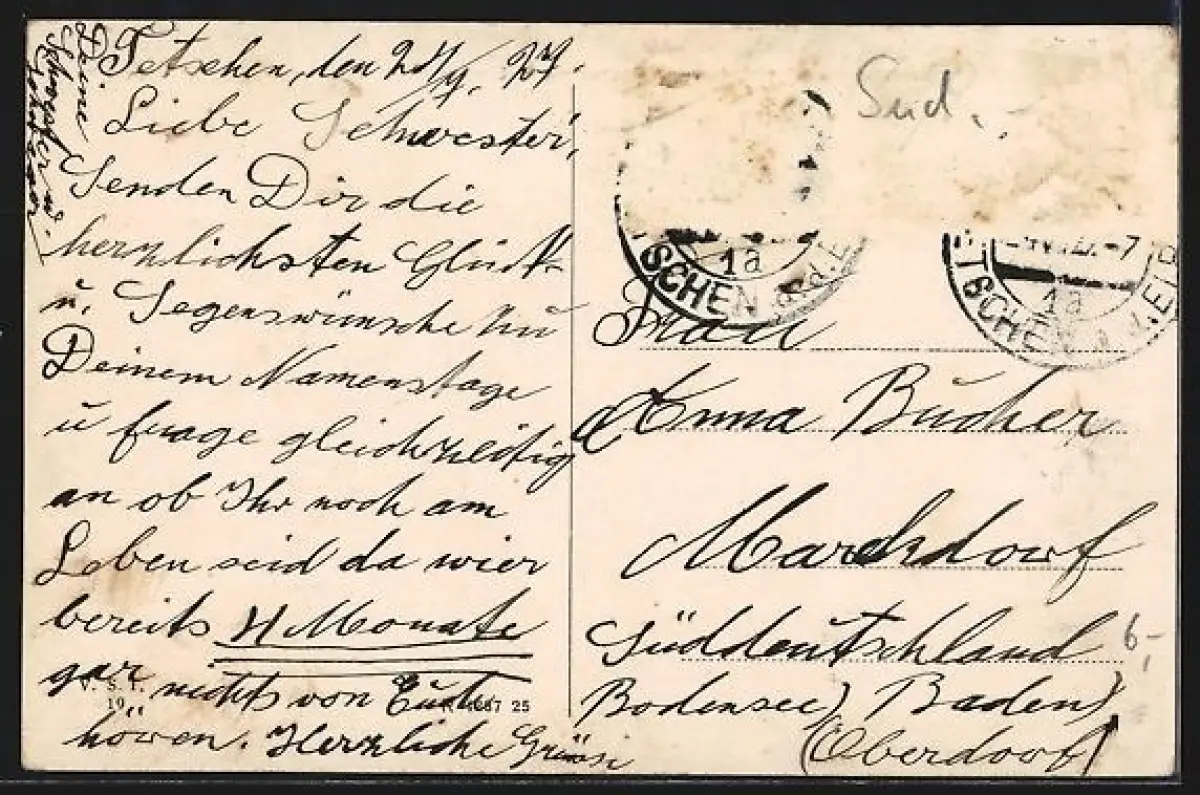 Tetschen, den 24/7. 27.
Liebe Schwester,
Senden Dir die
herzlichsten Glück-
u. Segenswünsche zu
Deinem Namenstage
u frage gleichzeitig
an ob Ihr noch am
Leben seid da wier
bereits 4 Monate
gar nichts von Euch
höwen. Herzliche Grüsse
Deine
Schwester u.
Sud.-
1a
SCHEN a.d.E
-7
1a
TSCHEN a.d.ELB
Frau
Anna Bucher
Markdorf
Süddeutschland
6,-
Bodensee) Baden)
(Oberdorf)
V. S. I.
19
37 25